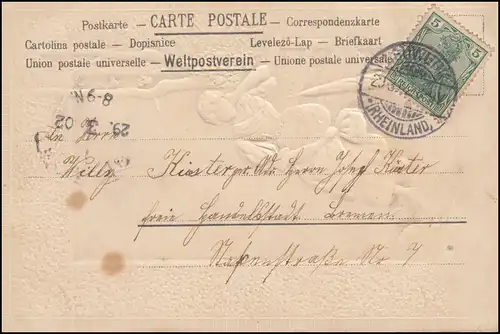 Postkarte — CARTE POSTALE — Correspondenzkarte
Cartolina postale — Dopisnice — Levelező-Lap — Briefkaart
Union postale universelle — Weltpostverein — Unione postale universale
5
5
(RHEINLAND)
8-9N.
29. 3. 02
An Herrn
Willy Küster pr. Adr. Herrn Josef Küster
freie Handelsstadt Bremen
No 7